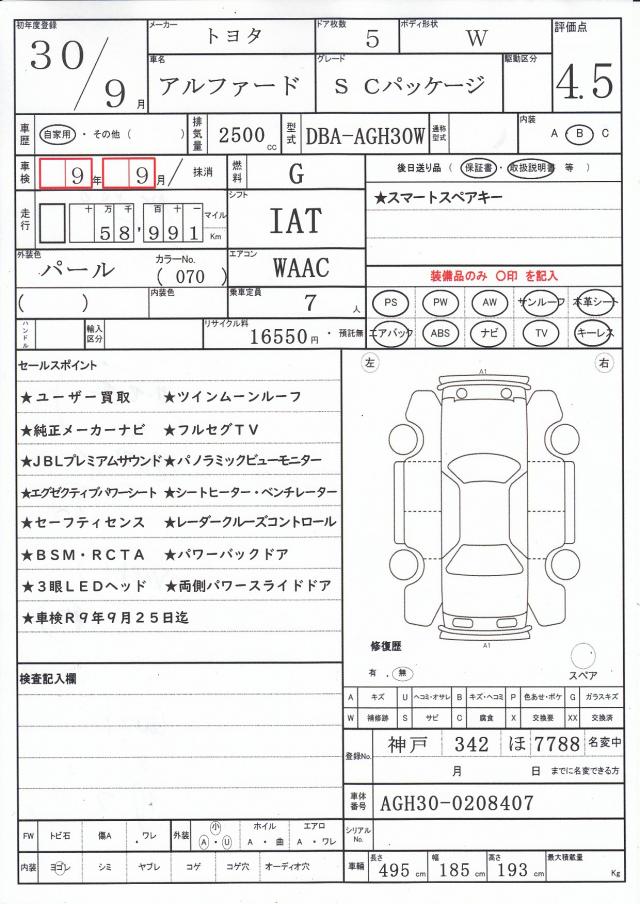 初年度登録 30/9月
メーカー トヨタ
ドア枚数 5
ボディ形状 W
評価点 4.5
車名 アルファード
グレード S Cパッケージ
駆動区分
車歴 自家用・その他( )
排気量 2500cc
型式 DBA-AGH30W
通称型式
内装 A・B C
車検 9年 9月/ 抹消
燃料 G
後日送り品 (保証書・取扱説明書 等)
★スマートスペアキー
走行 十万千百十一 58,991 マイル Km
シフト IAT
外装色 パール
カラーNo. (070)
エアコン WAAC
装備品のみ 〇印 を記入
( )
内装色
乗車定員 7人
PS PW AW サンルーフ 本革シート
ハンドル
輸入区分
リサイクル料 16550円・預託無
エアバック ABS ナビ TV キーレス
セールスポイント
★ユーザー買取 ★ツインムーンルーフ
★純正メーカーナビ ★フルセグTV
★JBLプレミアムサウンド★パノラミックビューモニター
★エグゼクティブパワーシート★シートヒーター・ベンチレーター
★セーフティセンス ★レーダークルーズコントロール
★BSM・RCTA ★パワーバックドア
★3眼LEDヘッド ★両側パワースライドドア
★車検R9年9月25日迄
左 右
A1
A1
修復歴
有・無
スペア
検査記入欄
A キズ U ヘコミ・オサレ B キズ・ヘコミ P 色あせ・ボケ G ガラスキズ
W 補修跡 S サビ C 腐食 X 交換要 XX 交換済
登録No. 神戸 342 ほ 7788 名変中
月 日 までに名変できる方
車体番号 AGH30-0208407
シリアルNo.
FW トビ石 傷A ・ワレ
外装 小 A・U ホイル A・曲 エアロ A・ワレ
内装 ヨゴレ シミ ヤブレ コゲ コゲ穴 オーディオ穴
車輛 長さ 495cm 幅 185cm 高さ 193cm 最大積載量 Kg